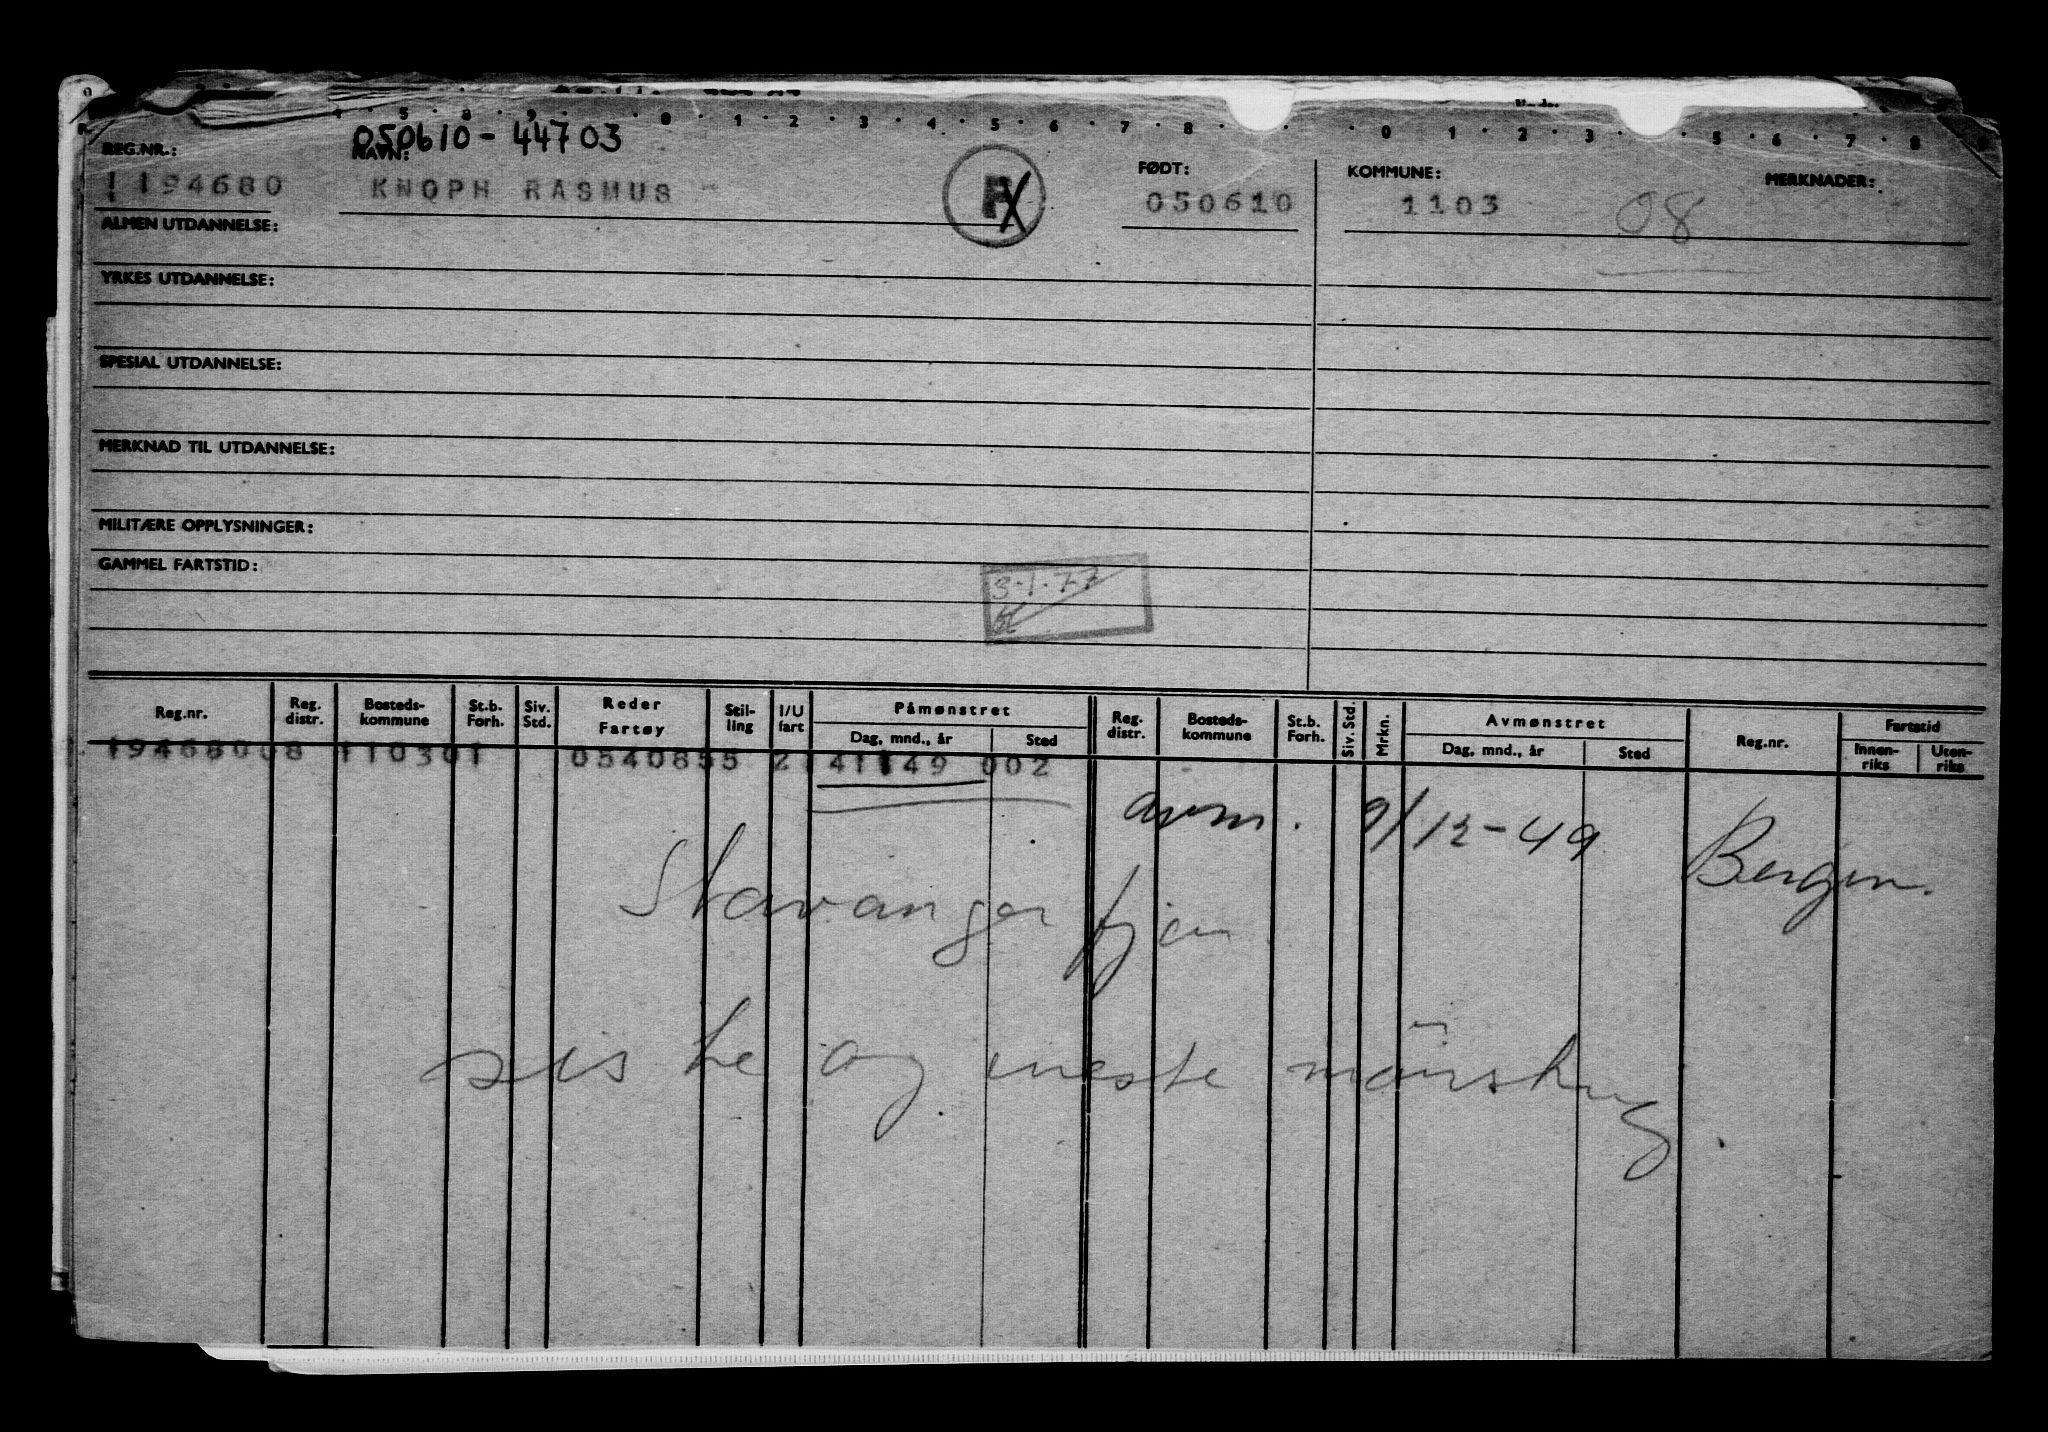 050610-44703
REG.NR.: NAVN: FØDT: KOMMUNE: MERKNADER:
194680 KNOPH RASMUS F 050610 1103 08
ALMEN UTDANNELSE:
YRKES UTDANNELSE:
SPESIAL UTDANNELSE:
MERKNAD TIL UTDANNELSE:
MILITÆRE OPPLYSNINGER:
GAMMEL FARTSTID:
3-1-77
Reg.nr. Reg. distr. Bosteds- kommune St.b. Forh. Siv. Std. Reder Fartøy Stil- ling I/U fart Påmønstret Dag, mnd., år Sted Reg. distr. Bosteds- kommune St.b. Forh. Siv. Std. Mrkn. Avmønstret Dag, mnd., år Sted Reg.nr. Fartstid Innen- riks Uten- riks
19468008 110301 0540855 2 41149 002
avm. 9/12-49 Bergen.
Stavangerfjor
siste og neste mønstring.